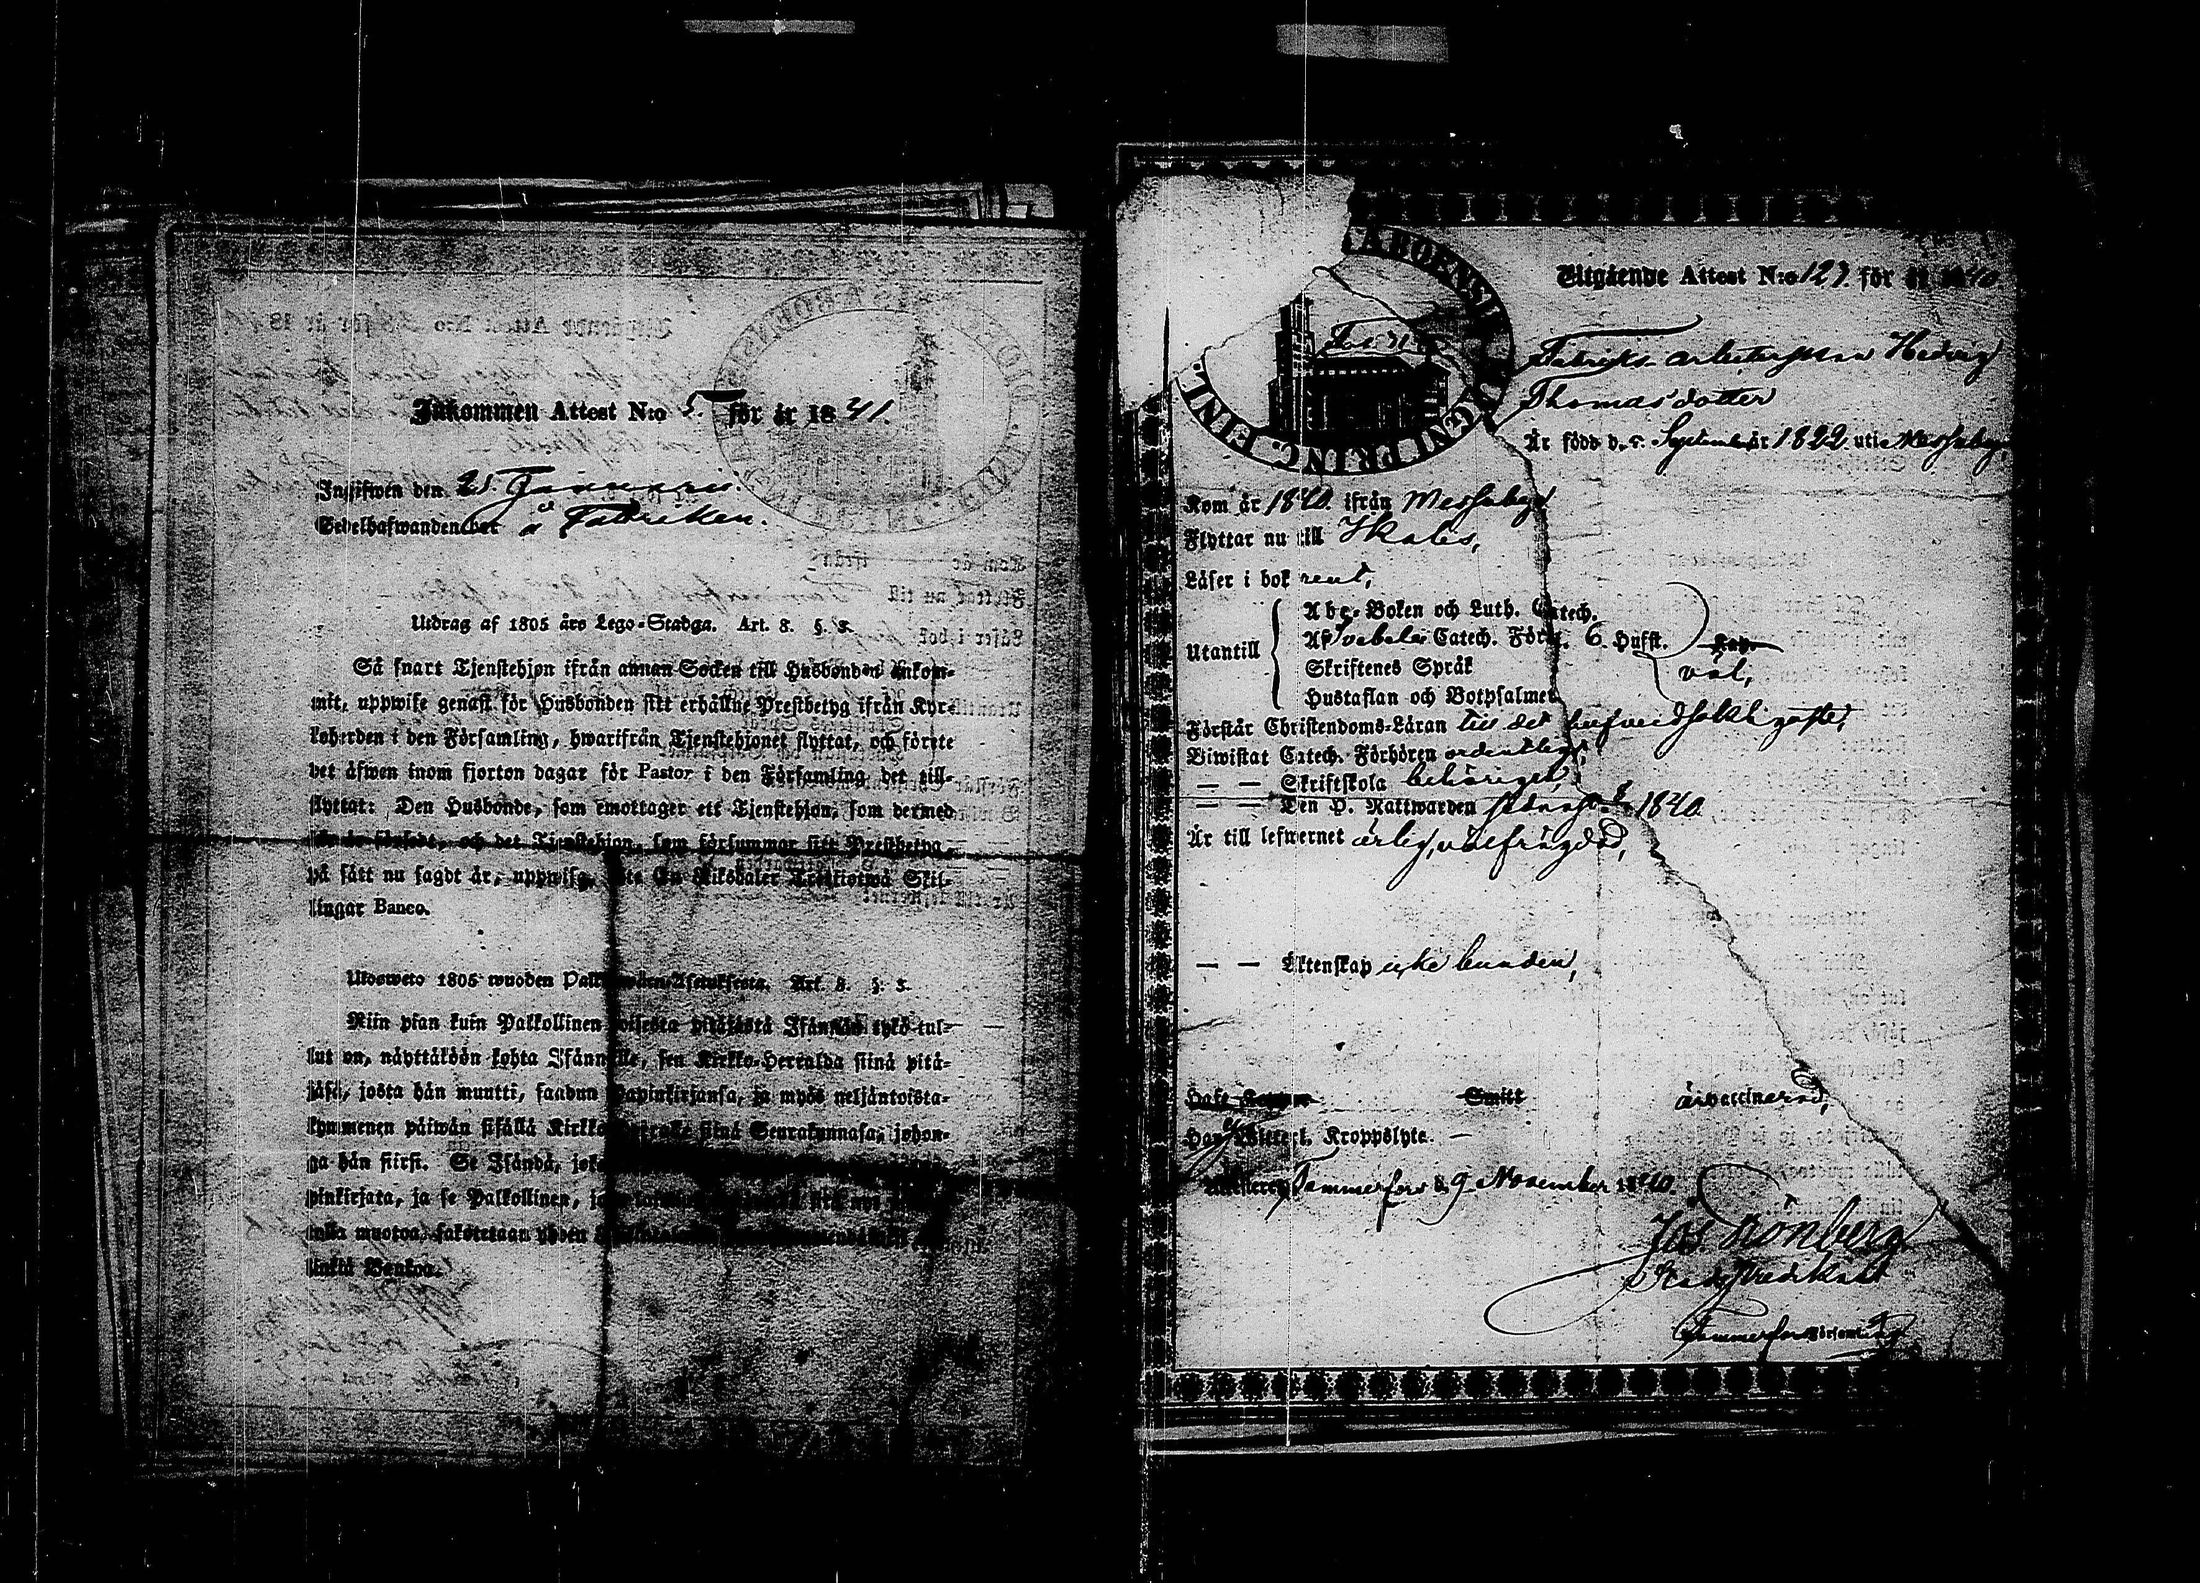 Inkommen Attest N:o 5. för år 1841.
Inskifwen den 25 Januarii.
Sedelhafwanden bor å Fabriken.
Utdrag af 1805 års Lego-Stadga. Art. 8. §. 3.
Så snart Tjenstehjon ifrån annan Socken till Husbonden ankom-
mit, uppwise genast för Husbonden sitt erhållne Prestbetyg ifrån Kyr-
koherden i den Församling, hwarifrån Tjenstehjonet flyttat, och förete
det äfwen inom fjorton dagar för Pastor i den Församling det till-
flyttat: Den Husbonde, som emottager ett Tjenstehjon, som dermed
och det Tjenstehjon, som försummar sitt Prestbetyg,
på sätt nu sagdt är, uppwisa, Riksdaler Trettiotwå Skil-
lingar Banco.
Ulosweto 1805 wuoden Art. 8. §. 3.
Niin pian kuin Palkollinen toisesta pitäjästä Isännän tykö tul-
lut on, näyttäköön kohta Isännälle, sen Kirkko-Herralda siinä pitä-
jäsä, josta hän muutti, saadun Papinkirjansa, ja myös neljäntoista-
kymmenen päiwän sisällä siinä Seurakunnasa, johon-
ga hän siirsi. Se Isändä,
pinkirjata, ja se Palkollinen,
muotoa, sakotetaan yhden
Bankoa.
ABOENSIS MAGNI PRINC. FINL.
Utgående Attest N:o 127. för år 1840
Fabriks-arbeterskan Hedvig
Thomasdotter
Är född d. September år 1822 uti Messuby
Kom år 1840. ifrån Messuby
Flyttar nu till Ikalis,
Läser i bok rent,
Utantill
Abc-Boken och Luth. Catech.
Af Svebelii Catech. Förk. 6. Hufst.
Skriftenes Språk
väl,
Hustaflan och Botpsalmer
Förstår Christendoms-Läran till det hufvudsakligaste,
Biwistat Catech. Förhören ordentligt,
— — Skriftskola behörigen,
— — Den H. Nattwarden 1840
Är till lefwernet ärlig, välfrägdad,
— — Äktenskap icke bunden,
Smitt
är vaccinerad,
Kroppslyte. —
Tammerfors d. 9 November 1840.
Jos. Grönberg
Stadspredikant
Tammerfors Församling